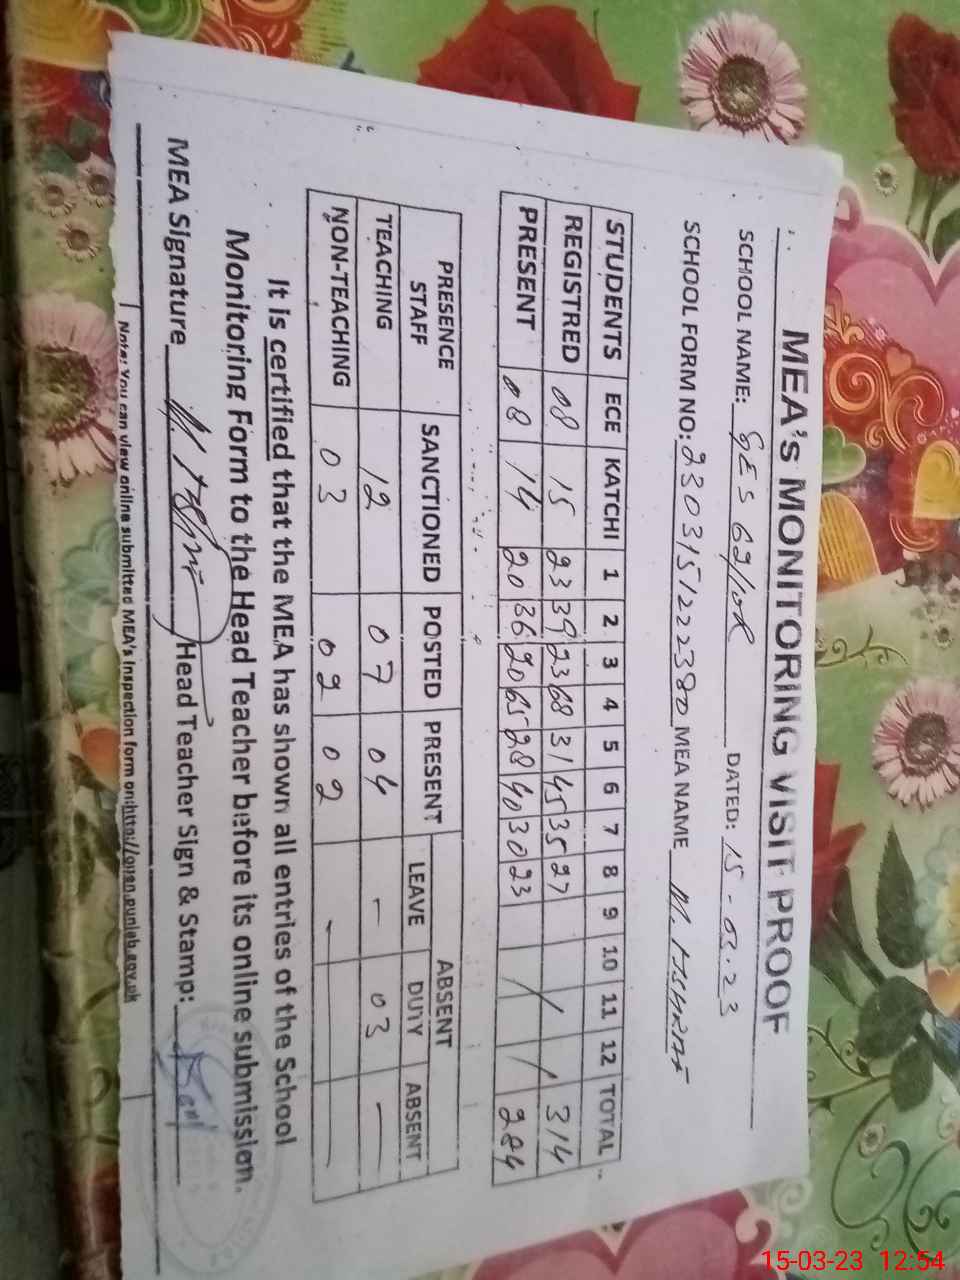 MEA's MONITORING VISIT PROOF
SCHOOL NAME: GES 62/10R DATED: 15-03-23
SCHOOL FORM NO: 2303151222380 MEA NAME M. ASHRAF
STUDENTS ECE KATCHI 1 2 3 4 5 6 7 8 9 10 11 12 TOTAL
REGISTRED 08 15 23 39 23 68 31 45 35 27 / / 314
PRESENT 08 14 20 36 20 65 28 40 30 23 / / 284
PRESENCE STAFF SANCTIONED POSTED PRESENT ABSENT
LEAVE DUTY ABSENT
TEACHING 12 07 04 - 03 -
NON-TEACHING 03 02 02 - - -
It is certified that the MEA has shown all entries of the School
Monitoring Form to the Head Teacher before its online submission.
MEA Signature Head Teacher Sign & Stamp:
Note: You can view online submitted MEA's inspection form on:http://open.punjab.gov.pk
15-03-23 12:54